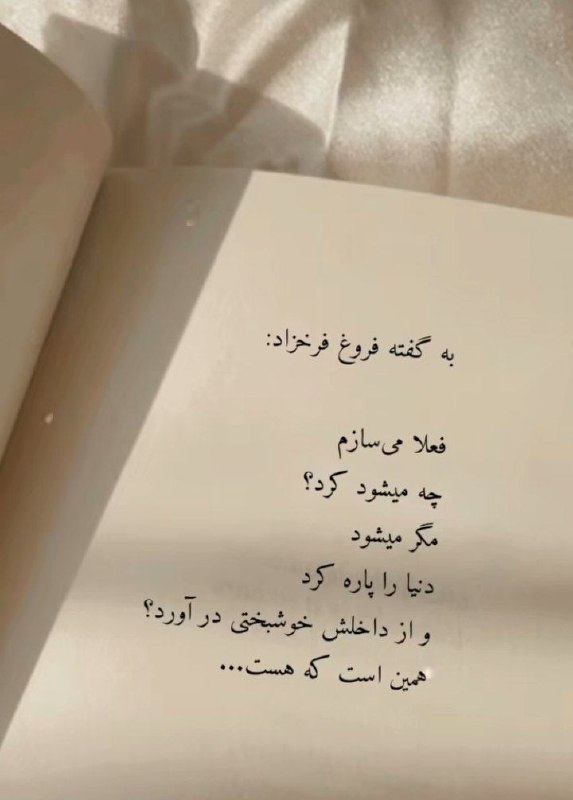 به گفته فروغ فرخزاد:
فعلا می‌سازم
چه میشود کرد؟
مگر میشود
دنیا را پاره کرد
و از داخلش خوشبختی در آورد؟
همین است که هست...